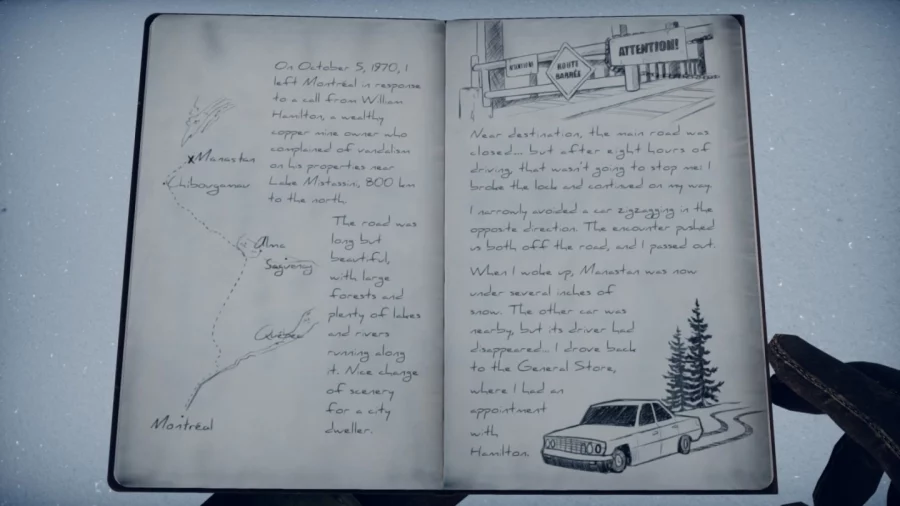 On October 5, 1970, I
left Montréal in response
to a call from William
Hamilton, a wealthy
copper mine owner who
complained of vandalism
on his properties near
Lake Mistassini, 800 km
to the north.
The road was
long but
beautiful,
with large
forests and
plenty of lakes
and rivers
running along
it. Nice change
of scenery
for a city
dweller.
Manastan
Chibougamau
Alma
Saguenay
Québec
Montréal
ROUTE
BARRÉE
ATTENTION!
Near destination, the main road was
closed... but after eight hours of
driving, that wasn't going to stop me! I
broke the lock and continued on my way.
I narrowly avoided a car zigzagging in the
opposite direction. The encounter pushed
us both off the road, and I passed out.
When I woke up, Manastan was now
under several inches of
snow. The other car was
nearby, but its driver had
disappeared... I drove back
to the General Store,
where I had an
appointment
with
Hamilton.